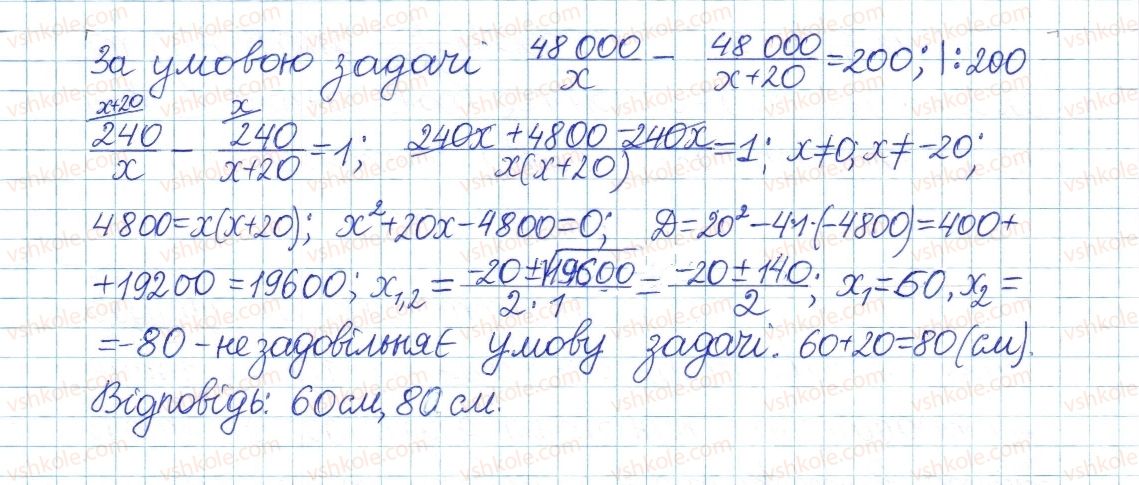 За умовою задачі 48 000/x − 48 000/(x+20) = 200; |:200
x+20 x
240/x − 240/(x+20) = 1; (240x + 4800 − 240x)/(x(x+20)) = 1; x≠0; x≠−20;
4800 = x(x+20); x² + 20x − 4800 = 0; Д = 20² − 4·1·(−4800) = 400 +
+ 19200 = 19600; x₁,₂ = (−20 ± √19600)/(2·1) = (−20 ± 140)/2; x₁ = 60, x₂ =
= −80 – не задовільняє умову задачі. 60+20=80 (см).
Відповідь: 60 см, 80 см.
vshkole.com